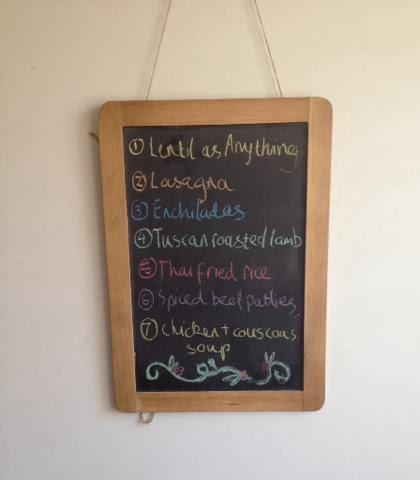 ① Lentil as Anything
② Lasagna
③ Enchiladas
④ Tuscan roasted lamb
⑤ Thai fried rice
⑥ Spiced beef patties
⑦ Chicken + couscous
soup